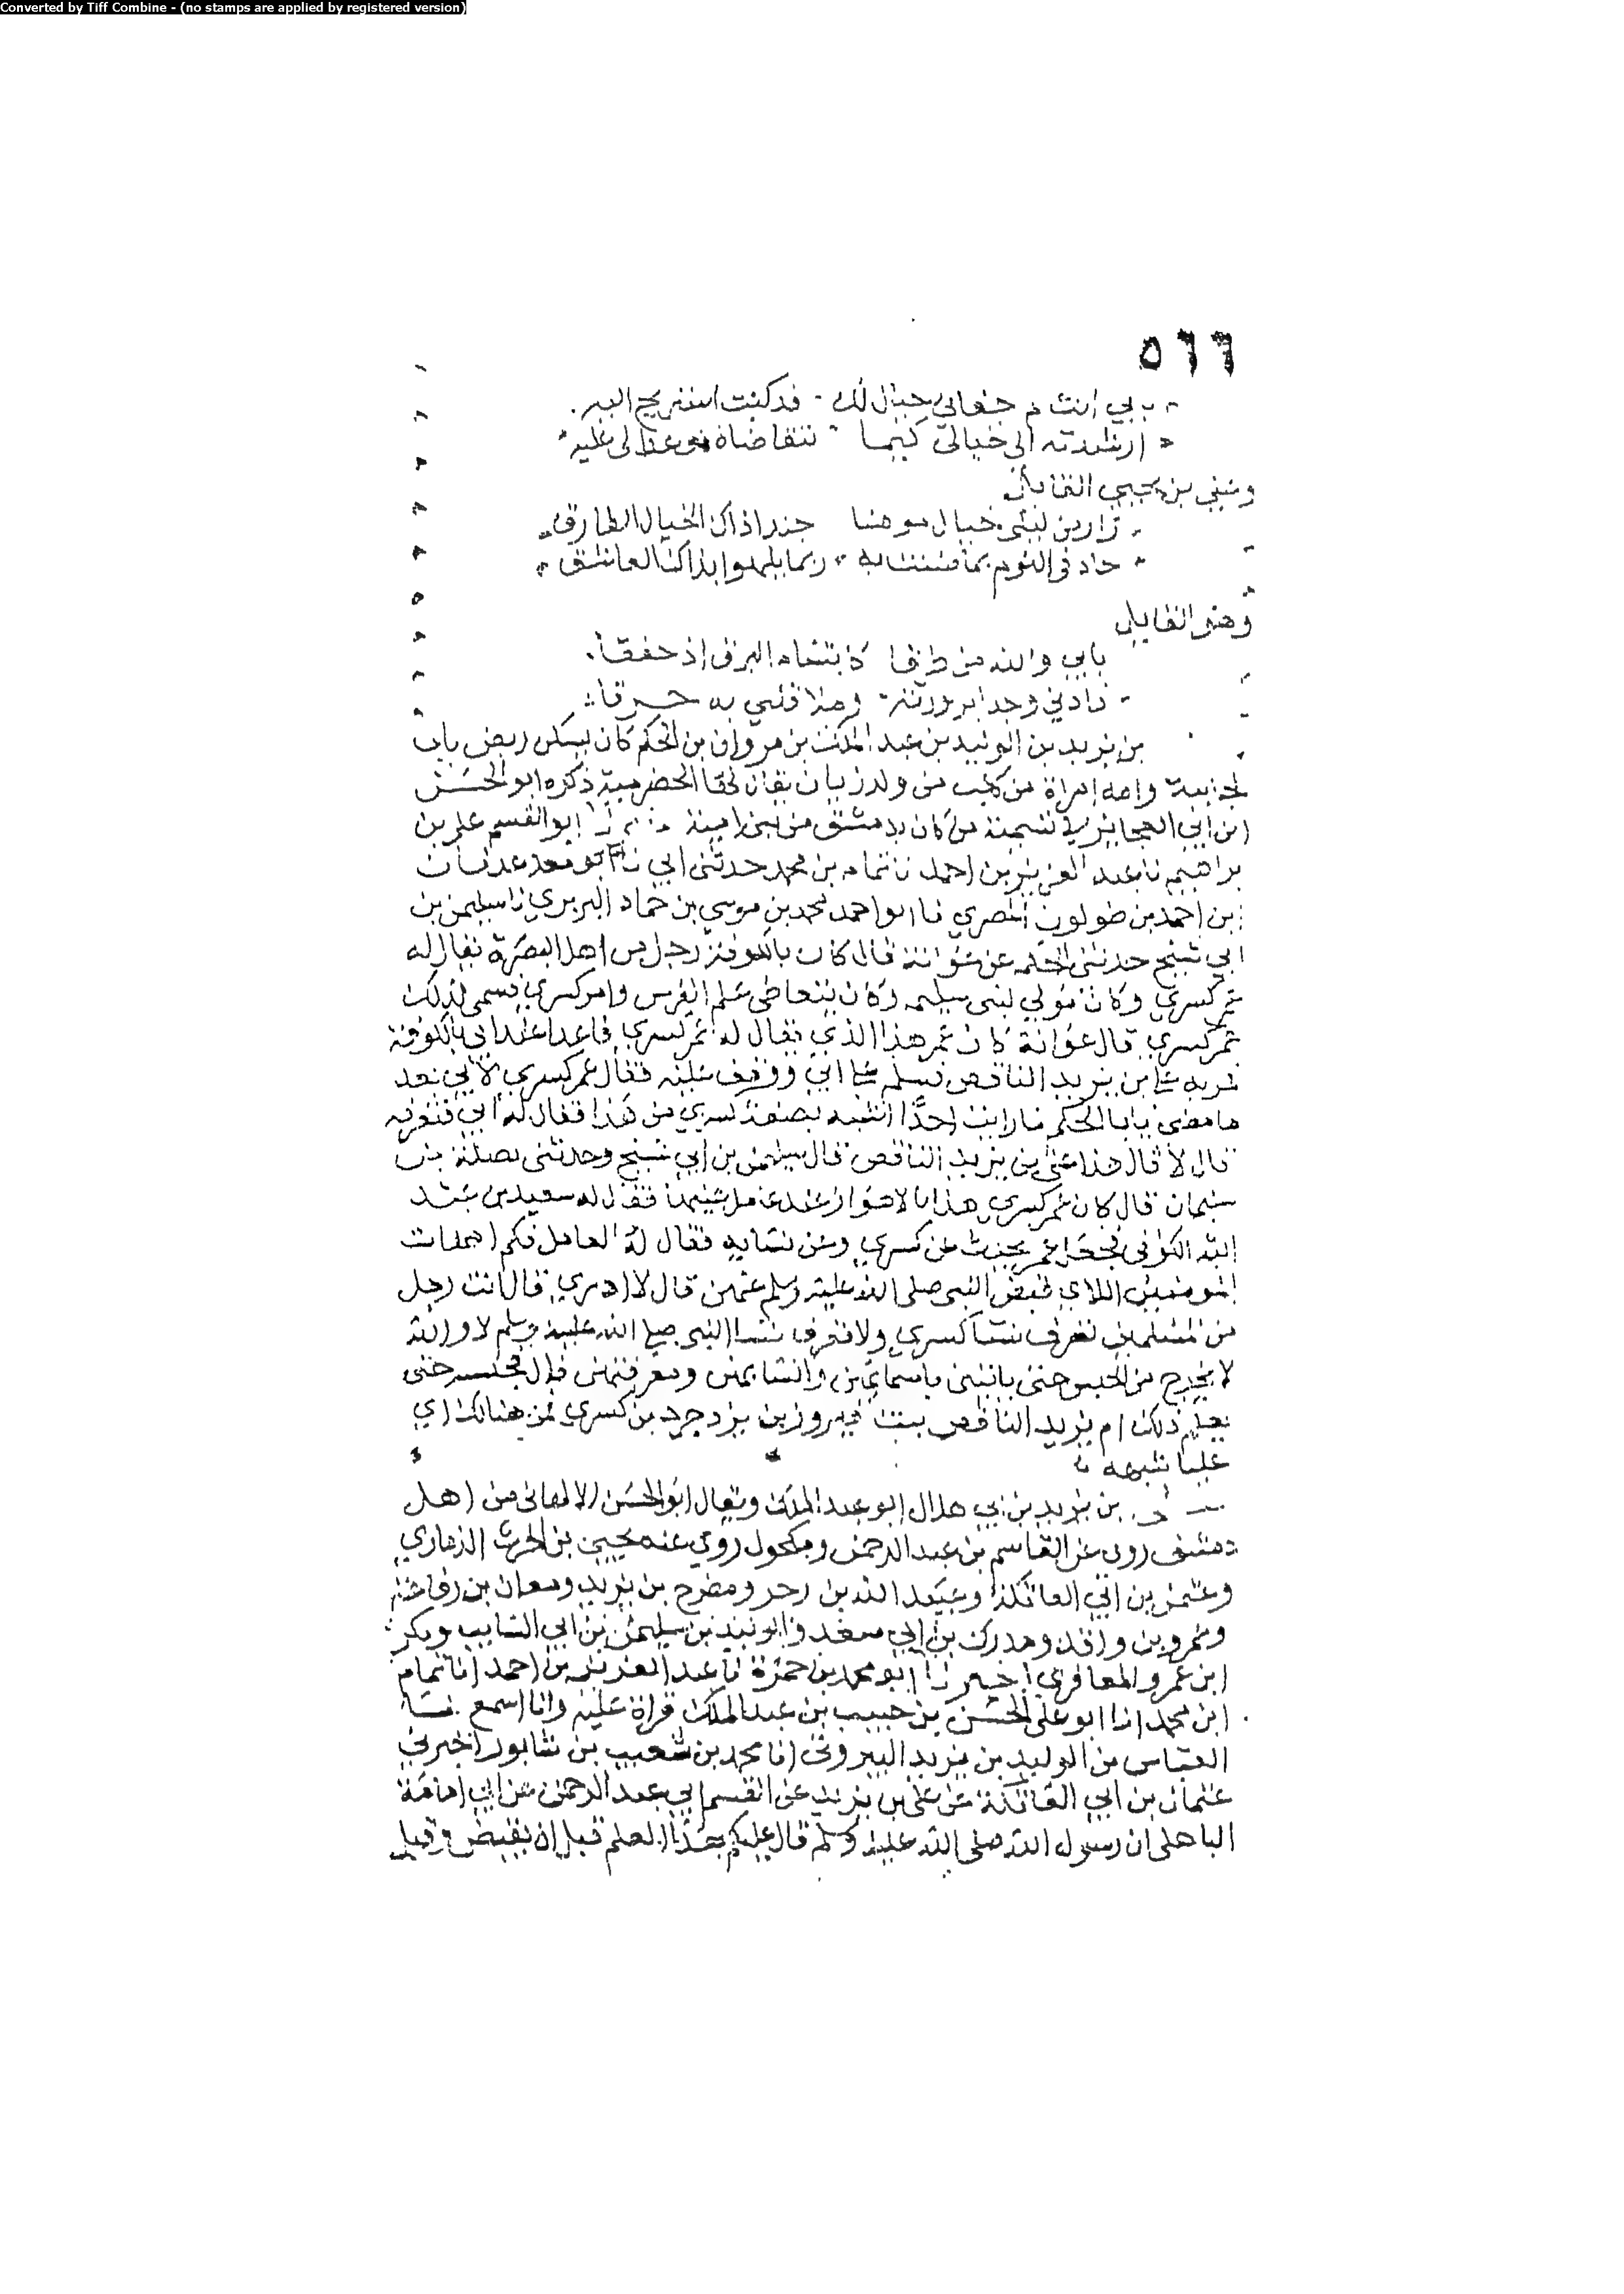 Converted by Tiff Combine - (no stamps are applied by registered version)
٥٦٦
بابي انت جفاني خيال لك قد كنت استريح اليه
ارشدته الى خيالي كيما نتقاضاه موعدا لي عليه
زارين خيال موهنا حبذا ذاك الخيال الطارق
جاد في النوم بما ضنت به ربما يلهوا بذاك العاشق
وهو القايل
بابي والله من طرقا كابتسام البرق اذ خفقا
زادني وجدا برؤيته وملا قلبي به حرقا
بن يزيد بن الوليد بن عبد الملك بن مروان بن الحكم كان يسكن ربض باب
الجابية وامه امراة من كلب من ولد زبان يقال لها الحضرمية ذكره ابو الحسن
ابن ابي العجايز في تسمية من كان بدمشق من بني امية ابو القسم علي بن
براهيم نا عبد العزيز بن احمد نا تمام بن محمد حدثني ابي نا ابو معد عدنان
بن احمد بن طولون المصري نا ابو احمد محمد بن موسى بن حماد البربري نا سليمن بن
ابي شيخ حدثني عن عوانة قال كان بالكوفة رجل من اهل البصرة يقال له
عمر كسرى وكان مولى لبني وكان يتعاطى علم الفرس وامر كسرى فسمى لذلك
عمر كسرى قال عوانة كان عمر هذا الذي يقال له عمر كسرى قاعدا عند ابي بالكوفة
فمر به علي بن يزيد الناقص فسلم على ابي ووقف عليه فقال عمر كسرى لابي بعد
ما مضى يا ابا الحكم ما رايت احدا اشبه بصفة كسرى من هذا فقال له ابي فتعرفه
قال لا قال هذا علي بن يزيد الناقص قال سليمن بن ابي شيخ وحدثني صلة بن
سليمان قال كان عمر كسرى هذا بالاهواز عند عامل عليها فقال له سعيد بن عبد
الله الكوفي فجعل عمر يحدث عن كسرى وعن نسايه فقال له العامل فكم امهات
المومنين اللاي قبض النبي صلى الله عليه وسلم عنهن قال لا ادري قال انت رجل
من المسلمين تعرف نسا كسرى ولا تعرف نسا النبي صلى الله عليه وسلم لا والله
لا يخرج من الحبس حتى ياتيني باسمايهن وانسابهن ومعرفتهن قال فحبسه حتى
تعلم ذلك ام يزيد الناقص بنت فيروز بن يزدجرد بن كسرى فمن هنالك راي
عليا شبهه
بن يزيد بن ابي هلال ابو عبد الملك ويقال ابو الحسن الالهاني من اهل
دمشق روى عن القاسم بن عبد الرحمن ومكحول روى عنه يحيى بن الحرث الذماري
وعثمن بن ابي العاتكة وعبيد الله بن زحر ومطرح بن يزيد ومعان بن رفاعة
وعمرو بن واقد ومدرك بن ابي سعد والوليد بن سليمن بن ابي السايب وبكر
ابن عمرو المعافري اخبرنا ابو محمد بن حمزة نا عبد العزيز بن احمد انا تمام
ابن محمد انا ابو علي الحسن بن حبيب بن عبد الملك قراة عليه وانا اسمع نا
العباس بن الوليد بن مزيد البيروتي انا محمد بن شعيب بن شابور اخبرني
عثمان بن ابي العاتكة عن علي بن يزيد عن القسم ابي عبد الرحمن عن ابي امامة
الباهلي ان رسول الله صلى الله عليه وسلم قال عليكم بهذا العلم قبل ان يقبض وقبل